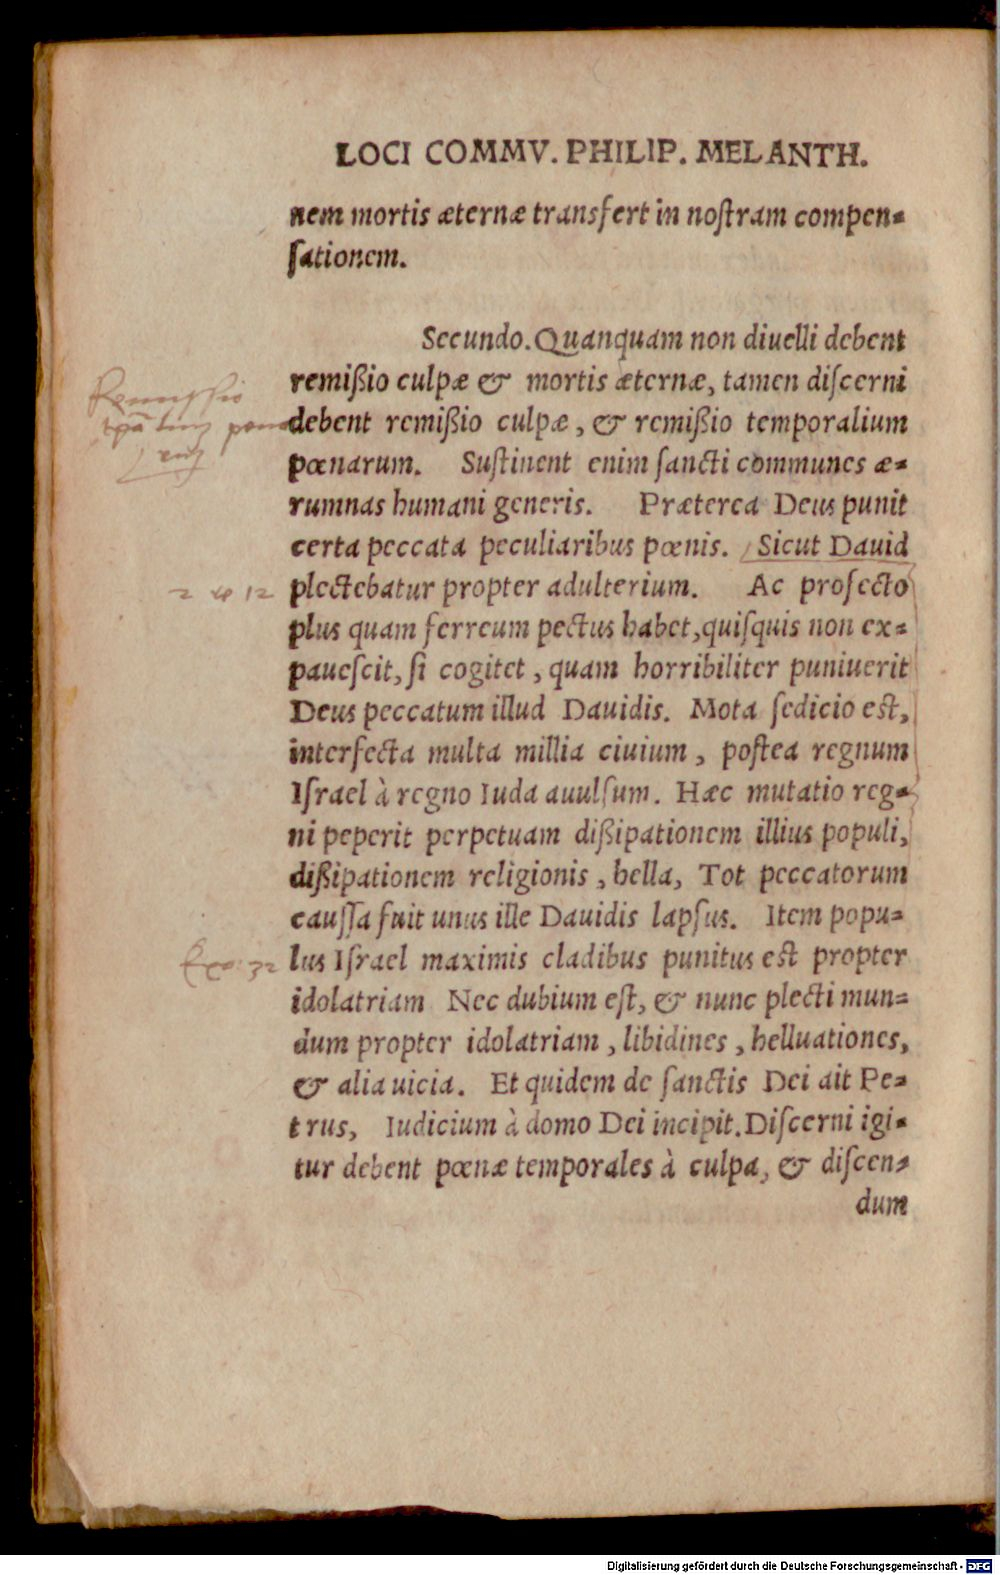 LOCI COMMV. PHILIP. MELANTH.
nem mortis æternæ transfert in noſtram compen-
ſationem.
Secundo. Quanquam non diuelli debent
remißio culpæ & mortis æternæ, tamen diſcerni
debent remißio culpæ, & remißio temporalium
pœnarum. Suſtinent enim ſancti communes æ-
rumnas humani generis. Præterea Deus punit
certa peccata peculiaribus pœnis. Sicut Dauid
plectebatur propter adulterium. Ac profecto
plus quam ferreum pectus habet, quiſquis non ex-
paueſcit, ſi cogitet, quam horribiliter puniuerit
Deus peccatum illud Dauidis. Mota ſedicio eſt,
interfecta multa millia ciuium, poſtea regnum
Iſrael à regno Iuda auulſum. Hæc mutatio reg-
ni peperit perpetuam dißipationem illius populi,
dißipationem religionis, bella, Tot peccatorum
cauſſa fuit unus ille Dauidis lapſus. Item popu-
lus Iſrael maximis cladibus punitus eſt propter
idolatriam Nec dubium eſt, & nunc plecti mun-
dum propter idolatriam, libidines, helluationes,
& alia uicia. Et quidem de ſanctis Dei ait Pe-
trus, Iudicium à domo Dei incipit. Diſcerni igi-
tur debent pœnæ temporales à culpa, & diſcen-
dum
Remissio
2 12
Exo: 32
Digitalisierung gefördert durch die Deutsche Forschungsgemeinschaft - DFG